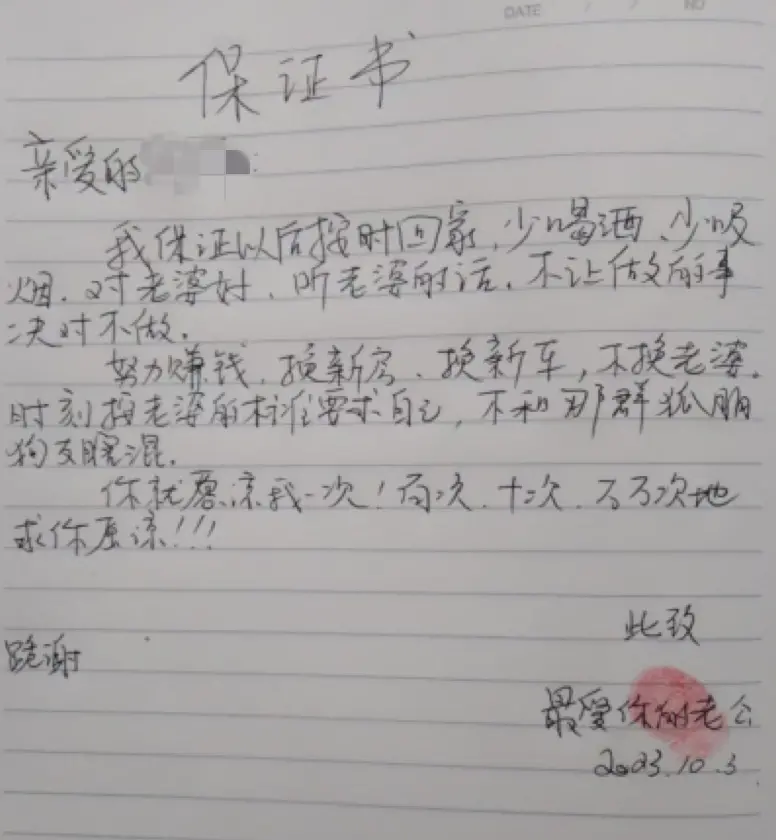 DATE / / NO
保证书
亲爱的 :
我保证以后按时回家、少喝酒、少吸
烟、对老婆好、听老婆的话、不让做的事
决对不做.
努力赚钱、换新房、换新车,不换老婆.
时刻按老婆的标准要求自己,不和那群狐朋
狗友瞎混.
你就原凉我一次!百次、十次、万万次地
求你原凉!!!
此致
跪谢
最爱你的老公
2023.10.3